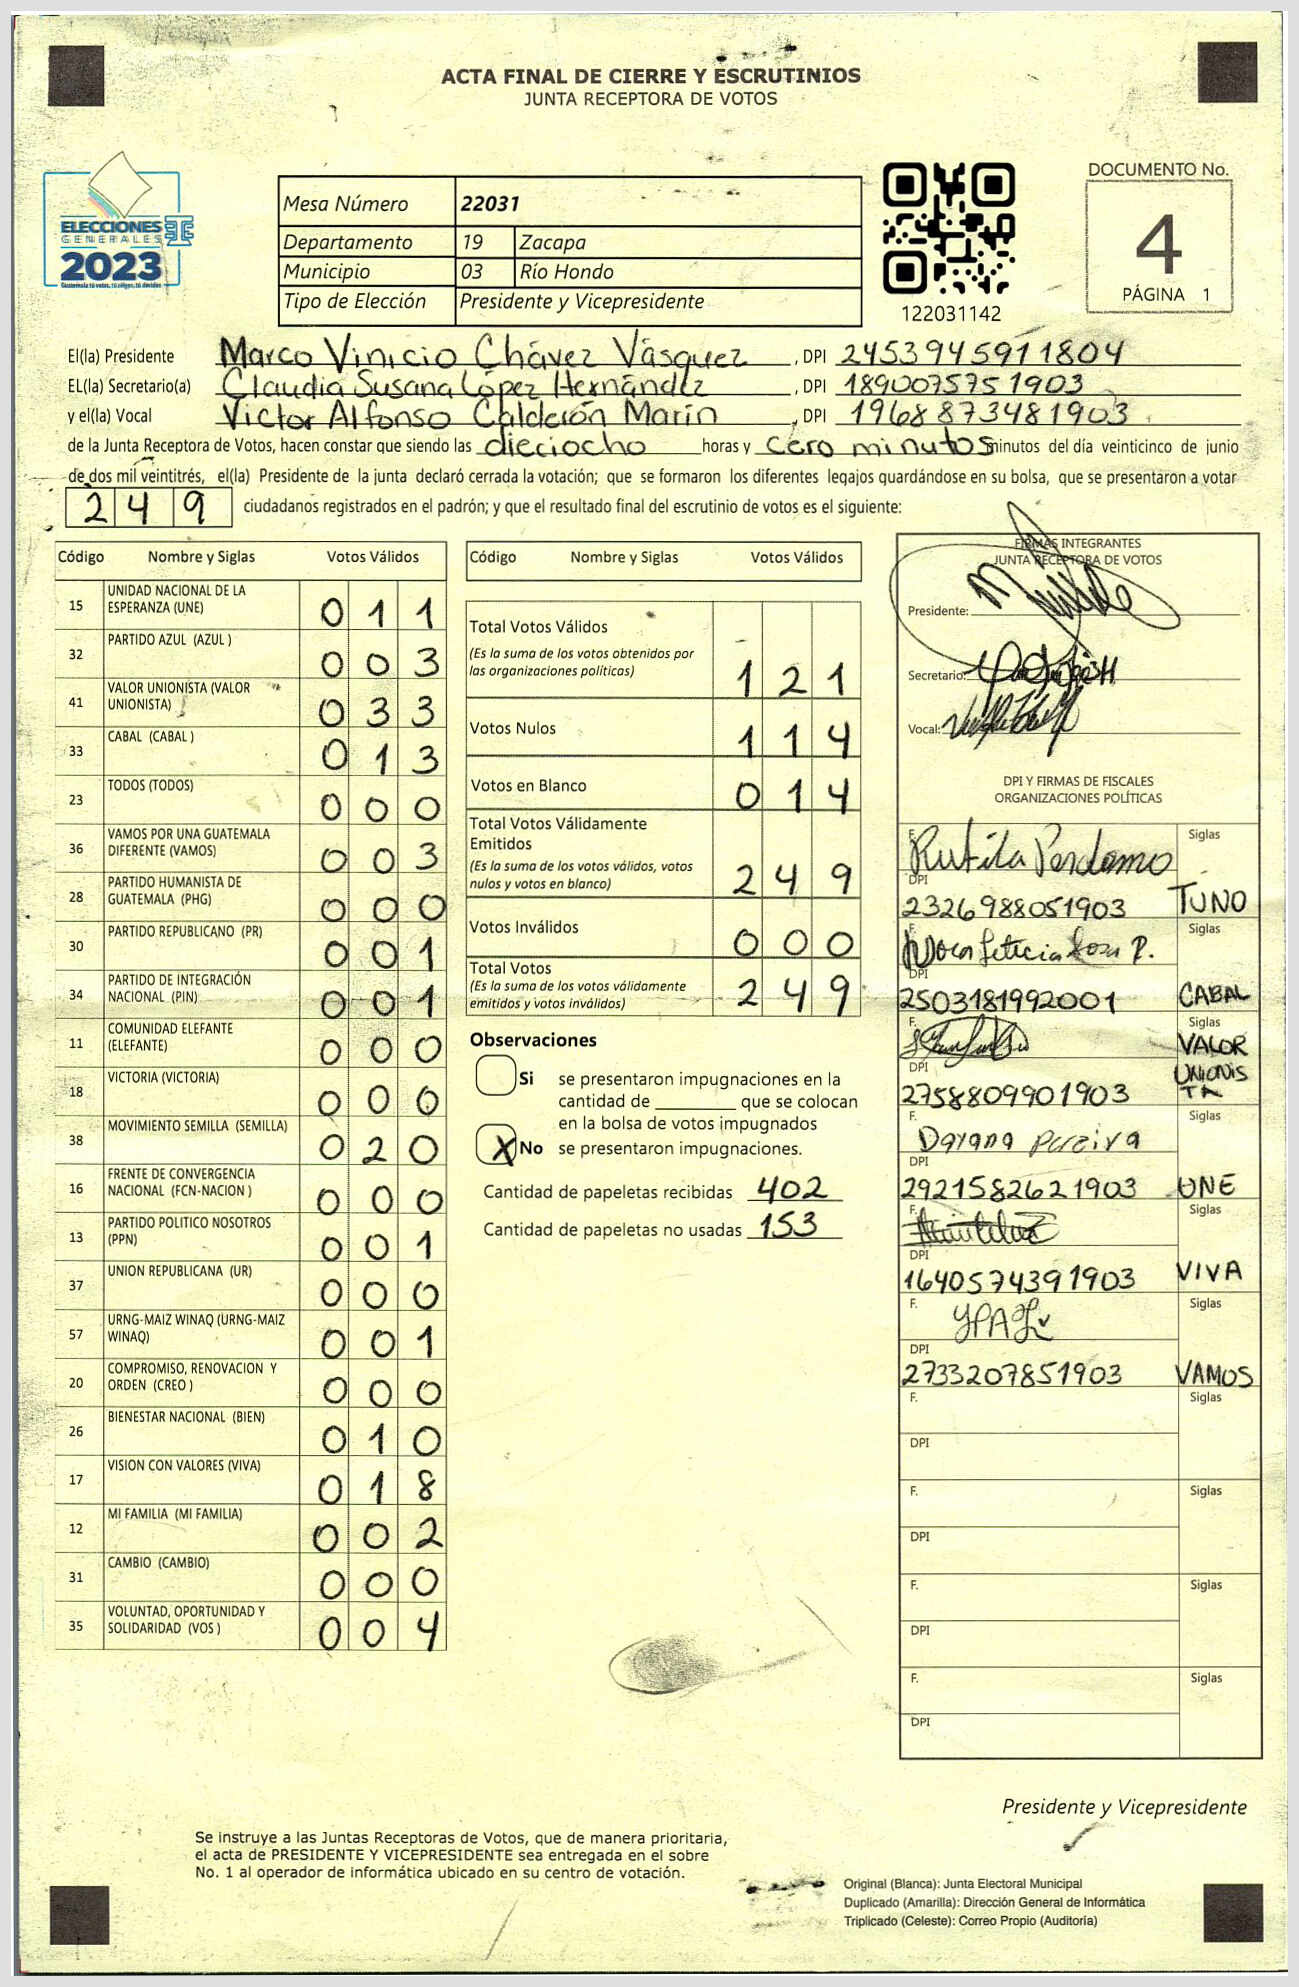 ACTA FINAL DE CIERRE Y ESCRUTINIOS
JUNTA RECEPTORA DE VOTOS
ELECCIONES
GENERALES
2023
Guatemala tú votas, tú eliges, tú decides
Mesa Número 22031
Departamento 19 Zacapa
Municipio 03 Río Hondo
Tipo de Elección Presidente y Vicepresidente
122031142
DOCUMENTO No.
4
PÁGINA 1
El(la) Presidente Marco Vinicio Chávez Vásquez, DPI 2453945911804
EL(la) Secretario(a) Claudia Susana López Hernández, DPI 1890075751903
y el(la) Vocal Victor Alfonso Calderón Marin, DPI 1968873481903
de la Junta Receptora de Votos, hacen constar que siendo las dieciocho horas y cero minutos minutos del día veinticinco de junio
de dos mil veintitrés, el(la) Presidente de la junta declaró cerrada la votación; que se formaron los diferentes legajos guardándose en su bolsa, que se presentaron a votar
249 ciudadanos registrados en el padrón; y que el resultado final del escrutinio de votos es el siguiente:
Código Nombre y Siglas Votos Válidos
15 UNIDAD NACIONAL DE LA ESPERANZA (UNE) 011
32 PARTIDO AZUL (AZUL ) 003
41 VALOR UNIONISTA (VALOR UNIONISTA) 033
33 CABAL (CABAL ) 013
23 TODOS (TODOS) 000
36 VAMOS POR UNA GUATEMALA DIFERENTE (VAMOS) 003
28 PARTIDO HUMANISTA DE GUATEMALA (PHG) 000
30 PARTIDO REPUBLICANO (PR) 001
34 PARTIDO DE INTEGRACIÓN NACIONAL (PIN) 001
11 COMUNIDAD ELEFANTE (ELEFANTE) 000
18 VICTORIA (VICTORIA) 000
38 MOVIMIENTO SEMILLA (SEMILLA) 020
16 FRENTE DE CONVERGENCIA NACIONAL (FCN-NACION ) 000
13 PARTIDO POLITICO NOSOTROS (PPN) 001
37 UNION REPUBLICANA (UR) 000
57 URNG-MAIZ WINAQ (URNG-MAIZ WINAQ) 001
20 COMPROMISO, RENOVACION Y ORDEN (CREO ) 000
26 BIENESTAR NACIONAL (BIEN) 010
17 VISION CON VALORES (VIVA) 018
12 MI FAMILIA (MI FAMILIA) 002
31 CAMBIO (CAMBIO) 000
35 VOLUNTAD, OPORTUNIDAD Y SOLIDARIDAD (VOS ) 004
Código Nombre y Siglas Votos Válidos
Total Votos Válidos
(Es la suma de los votos obtenidos por
las organizaciones políticas) 121
Votos Nulos 114
Votos en Blanco 014
Total Votos Válidamente
Emitidos
(Es la suma de los votos válidos, votos
nulos y votos en blanco) 249
Votos Inválidos 000
Total Votos
(Es la suma de los votos válidamente
emitidos y votos inválidos) 249
Observaciones
Si se presentaron impugnaciones en la
cantidad de ________ que se colocan
en la bolsa de votos impugnados
X No se presentaron impugnaciones.
Cantidad de papeletas recibidas 402
Cantidad de papeletas no usadas 153
FIRMAS INTEGRANTES
JUNTA RECEPTORA DE VOTOS
Presidente:
Secretario:
Vocal:
DPI Y FIRMAS DE FISCALES
ORGANIZACIONES POLÍTICAS
F. Rutila Perdomo Siglas
DPI
2326988051903 TUNO
F. Nora Leticia Sosa P. Siglas
DPI
2503181992001 CABAL
F. Siglas
DPI
2758809901903 VALOR UNIONISTA
F. Dayana Pereira Siglas
DPI
2921582621903 UNE
F. Siglas
DPI
1640574391903 VIVA
F. Siglas
DPI
2733207851903 VAMOS
F. Siglas
DPI
F. Siglas
DPI
F. Siglas
DPI
F. Siglas
DPI
Presidente y Vicepresidente
Se instruye a las Juntas Receptoras de Votos, que de manera prioritaria,
el acta de PRESIDENTE Y VICEPRESIDENTE sea entregada en el sobre
No. 1 al operador de informática ubicado en su centro de votación.
Original (Blanca): Junta Electoral Municipal
Duplicado (Amarilla): Dirección General de Informática
Triplicado (Celeste): Correo Propio (Auditoría)